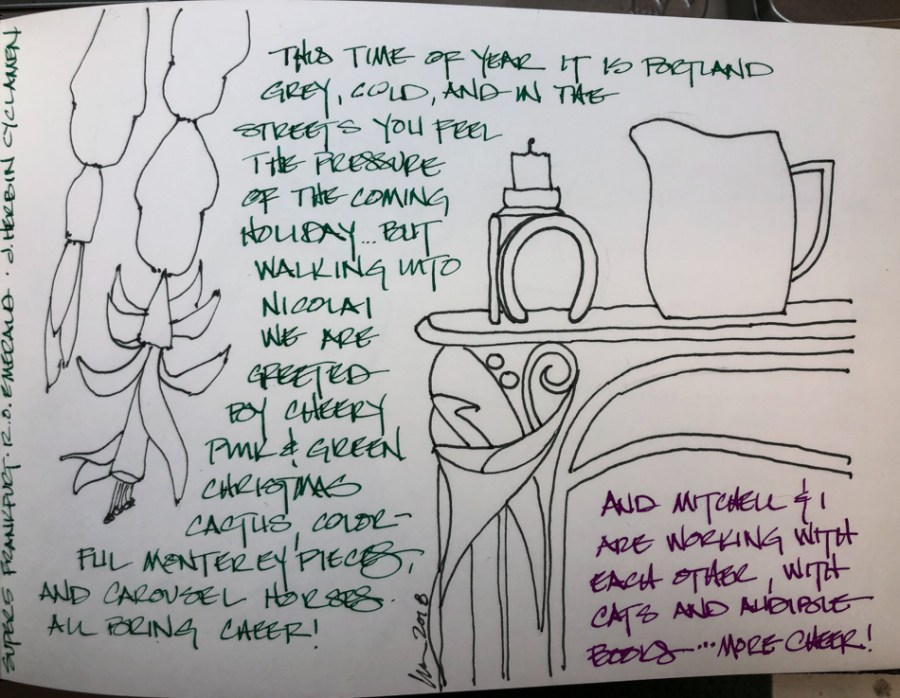 THIS TIME OF YEAR IT IS PORTLAND
GREY, COLD, AND IN THE
STREETS YOU FEEL
THE PRESSURE
OF THE COMING
HOLIDAY... BUT
WALKING INTO
NICOLAI
WE ARE
GREETED
BY CHEERY
PINK & GREEN
CHRISTMAS
CACTUS, COLOR-
FUL MONTEREY PIECES,
AND CAROUSEL HORSES.
ALL BRING CHEER!
AND MITCHELL & I
ARE WORKING WITH
EACH OTHER, WITH
CATS AND AUDIBLE
BOOKS...MORE CHEER!
2018
SUPER5 FRANKFURT · R.O. EMERALD · J. HERBIN CYCLAMEN